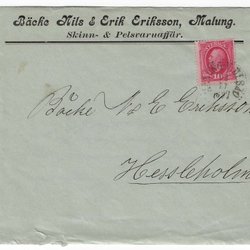 Bäcke Nils & Erik Eriksson, Malung.
Skinn- & Pelsvarnaffär.
SVERIGE
10
Bäcke N & E Eriksson
Hessleholm